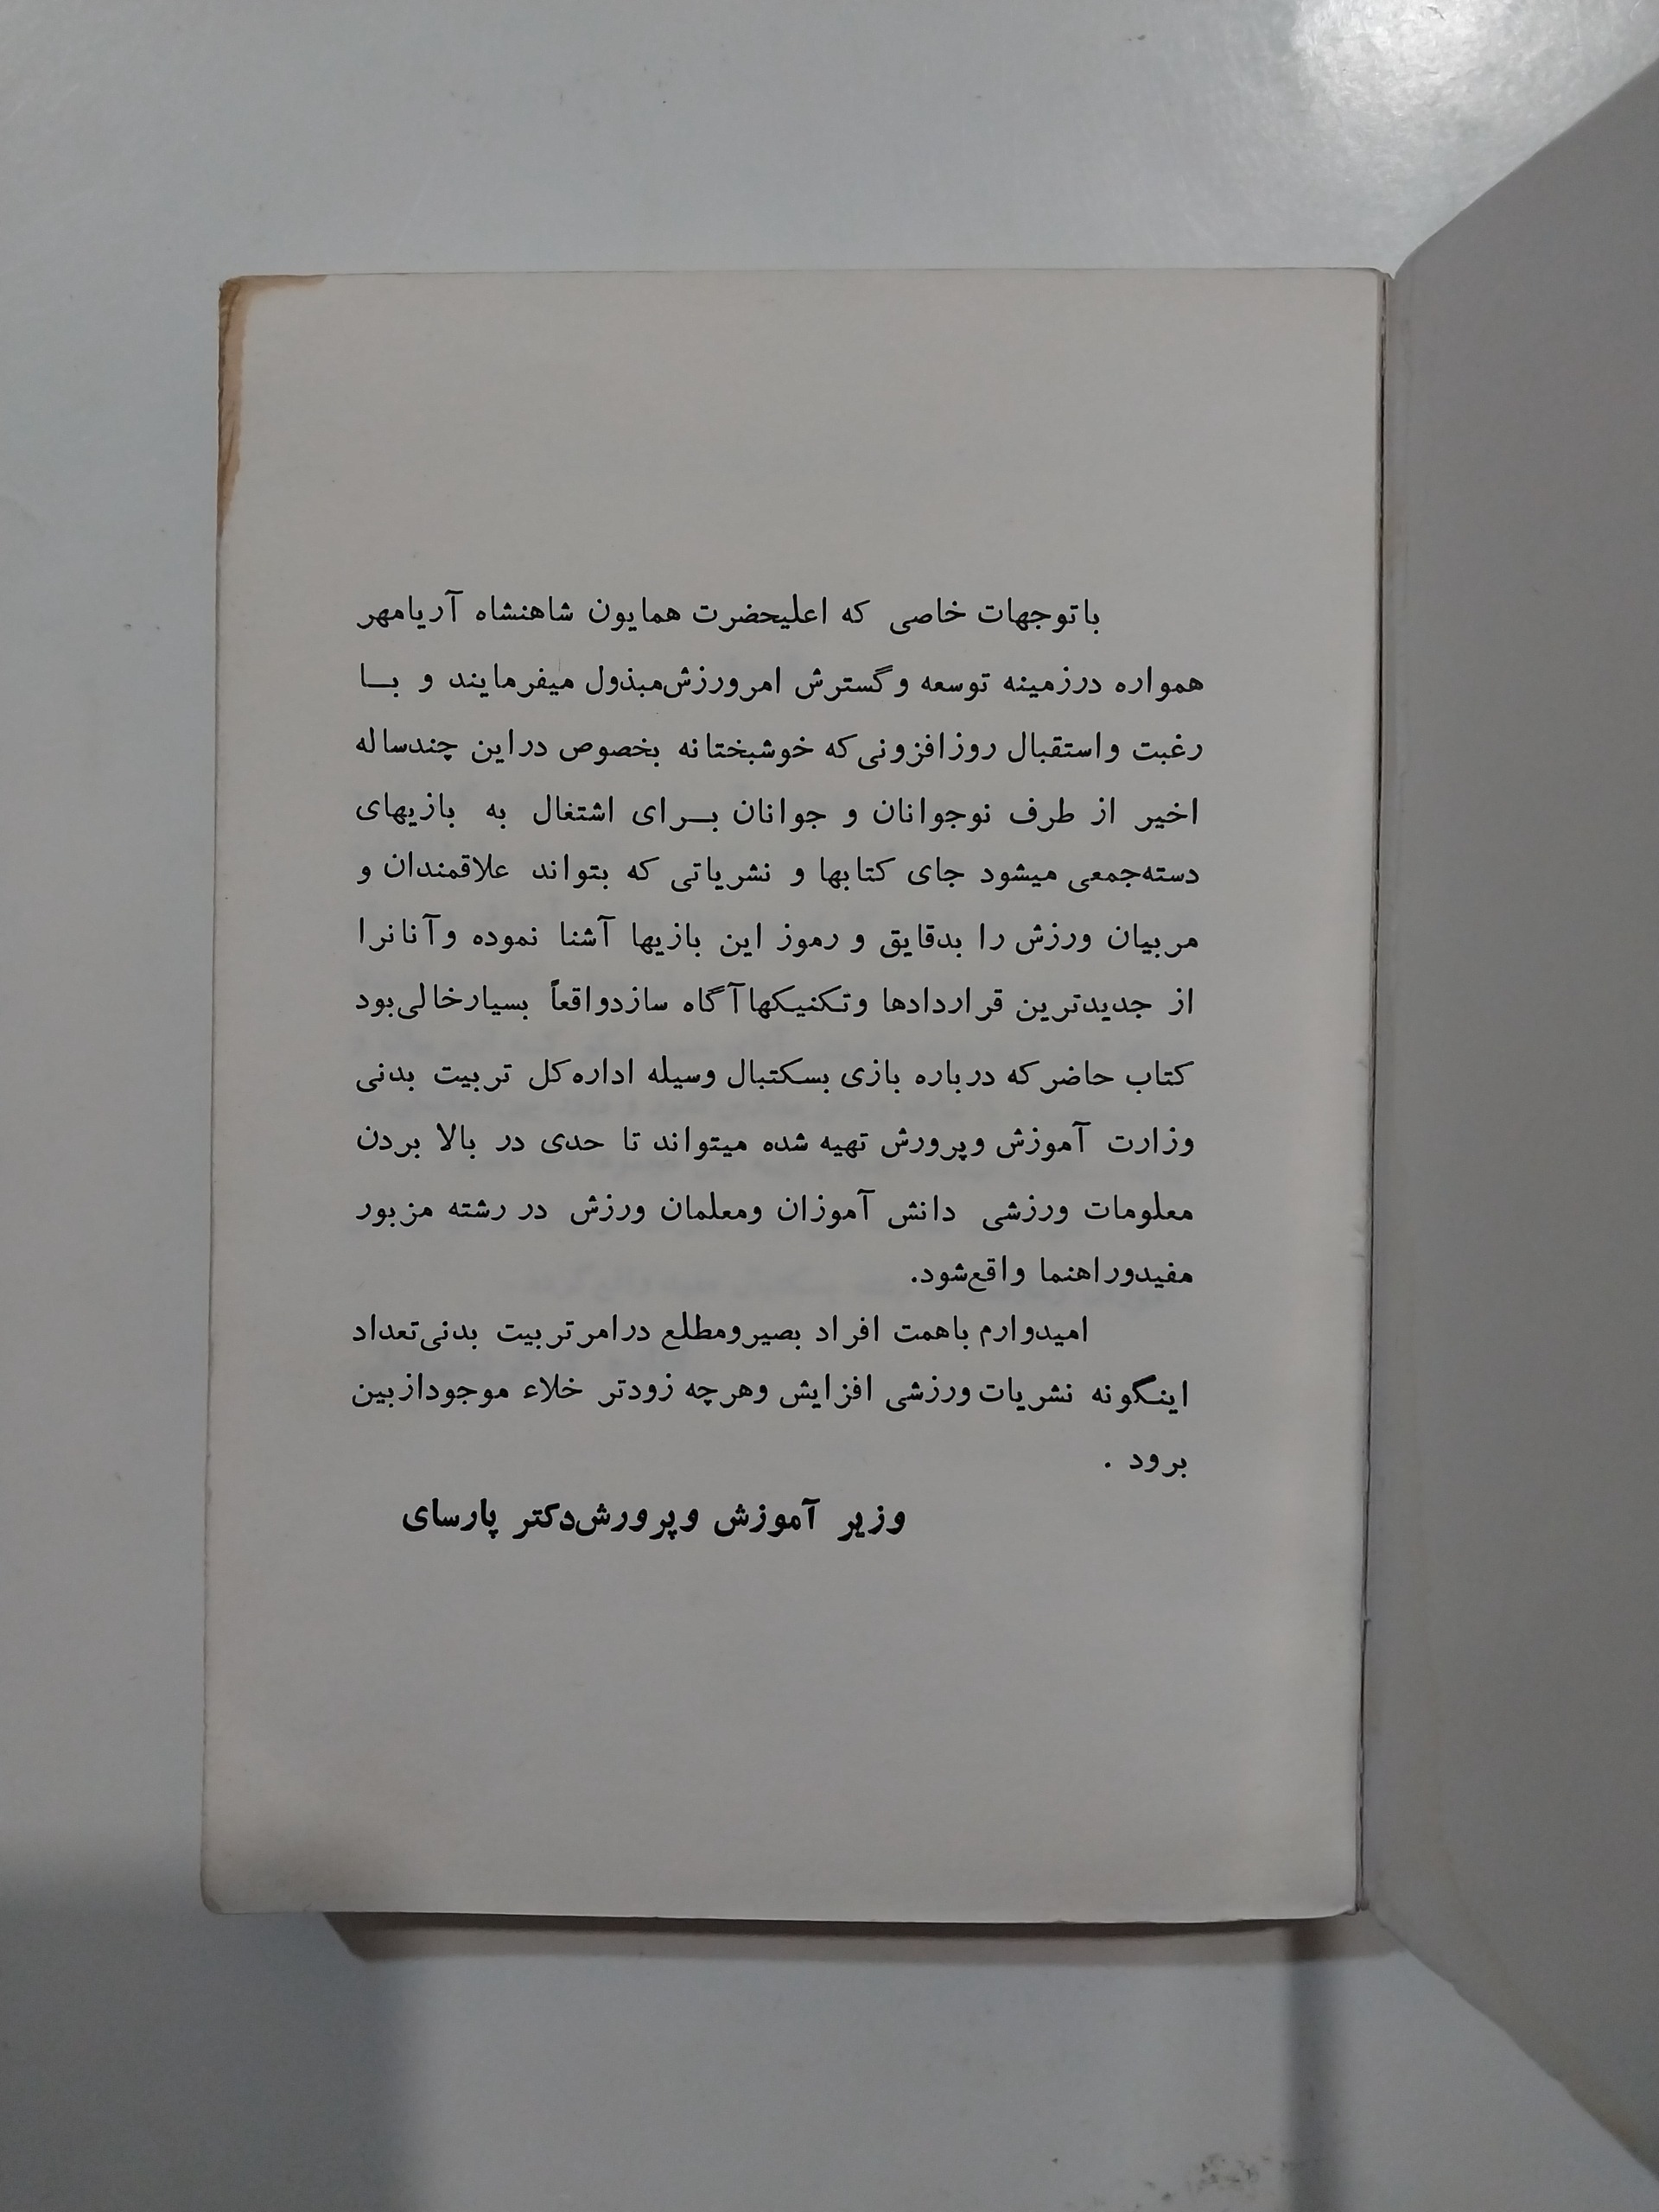 باتوجهات خاصی که اعلیحضرت همایون شاهنشاه آریامهر
همواره درزمینه توسعه وگسترش امرورزش‌مبذول میفرمایند و بــا
رغبت واستقبال روزافزونی‌که خوشبختانه بخصوص دراین چندساله
اخیر از طرف نوجوانان و جوانان بــرای اشتغال به بازیهای
دسته‌جمعی میشود جای کتابها و نشریاتی که بتواند علاقمندان و
مربیان ورزش را بدقایق و رموز این بازیها آشنا نموده وآنانرا
از جدیدترین قراردادها وتکنیکهاآگاه سازدواقعاً بسیارخالی‌بود
کتاب حاضرکه درباره بازی بسکتبال وسیله اداره‌کل تربیت بدنی
وزارت آموزش وپرورش تهیه شده میتواند تا حدی در بالا بردن
معلومات ورزشی دانش آموزان ومعلمان ورزش در رشته مزبور
مفیدوراهنما واقع‌شود.
امیدوارم باهمت افراد بصیرومطلع درامرتربیت بدنی‌تعداد
اینگونه نشریات‌ورزشی افزایش وهرچه زودتر خلاء موجودازبین
برود .
وزیر آموزش وپرورش‌دکتر پارسای